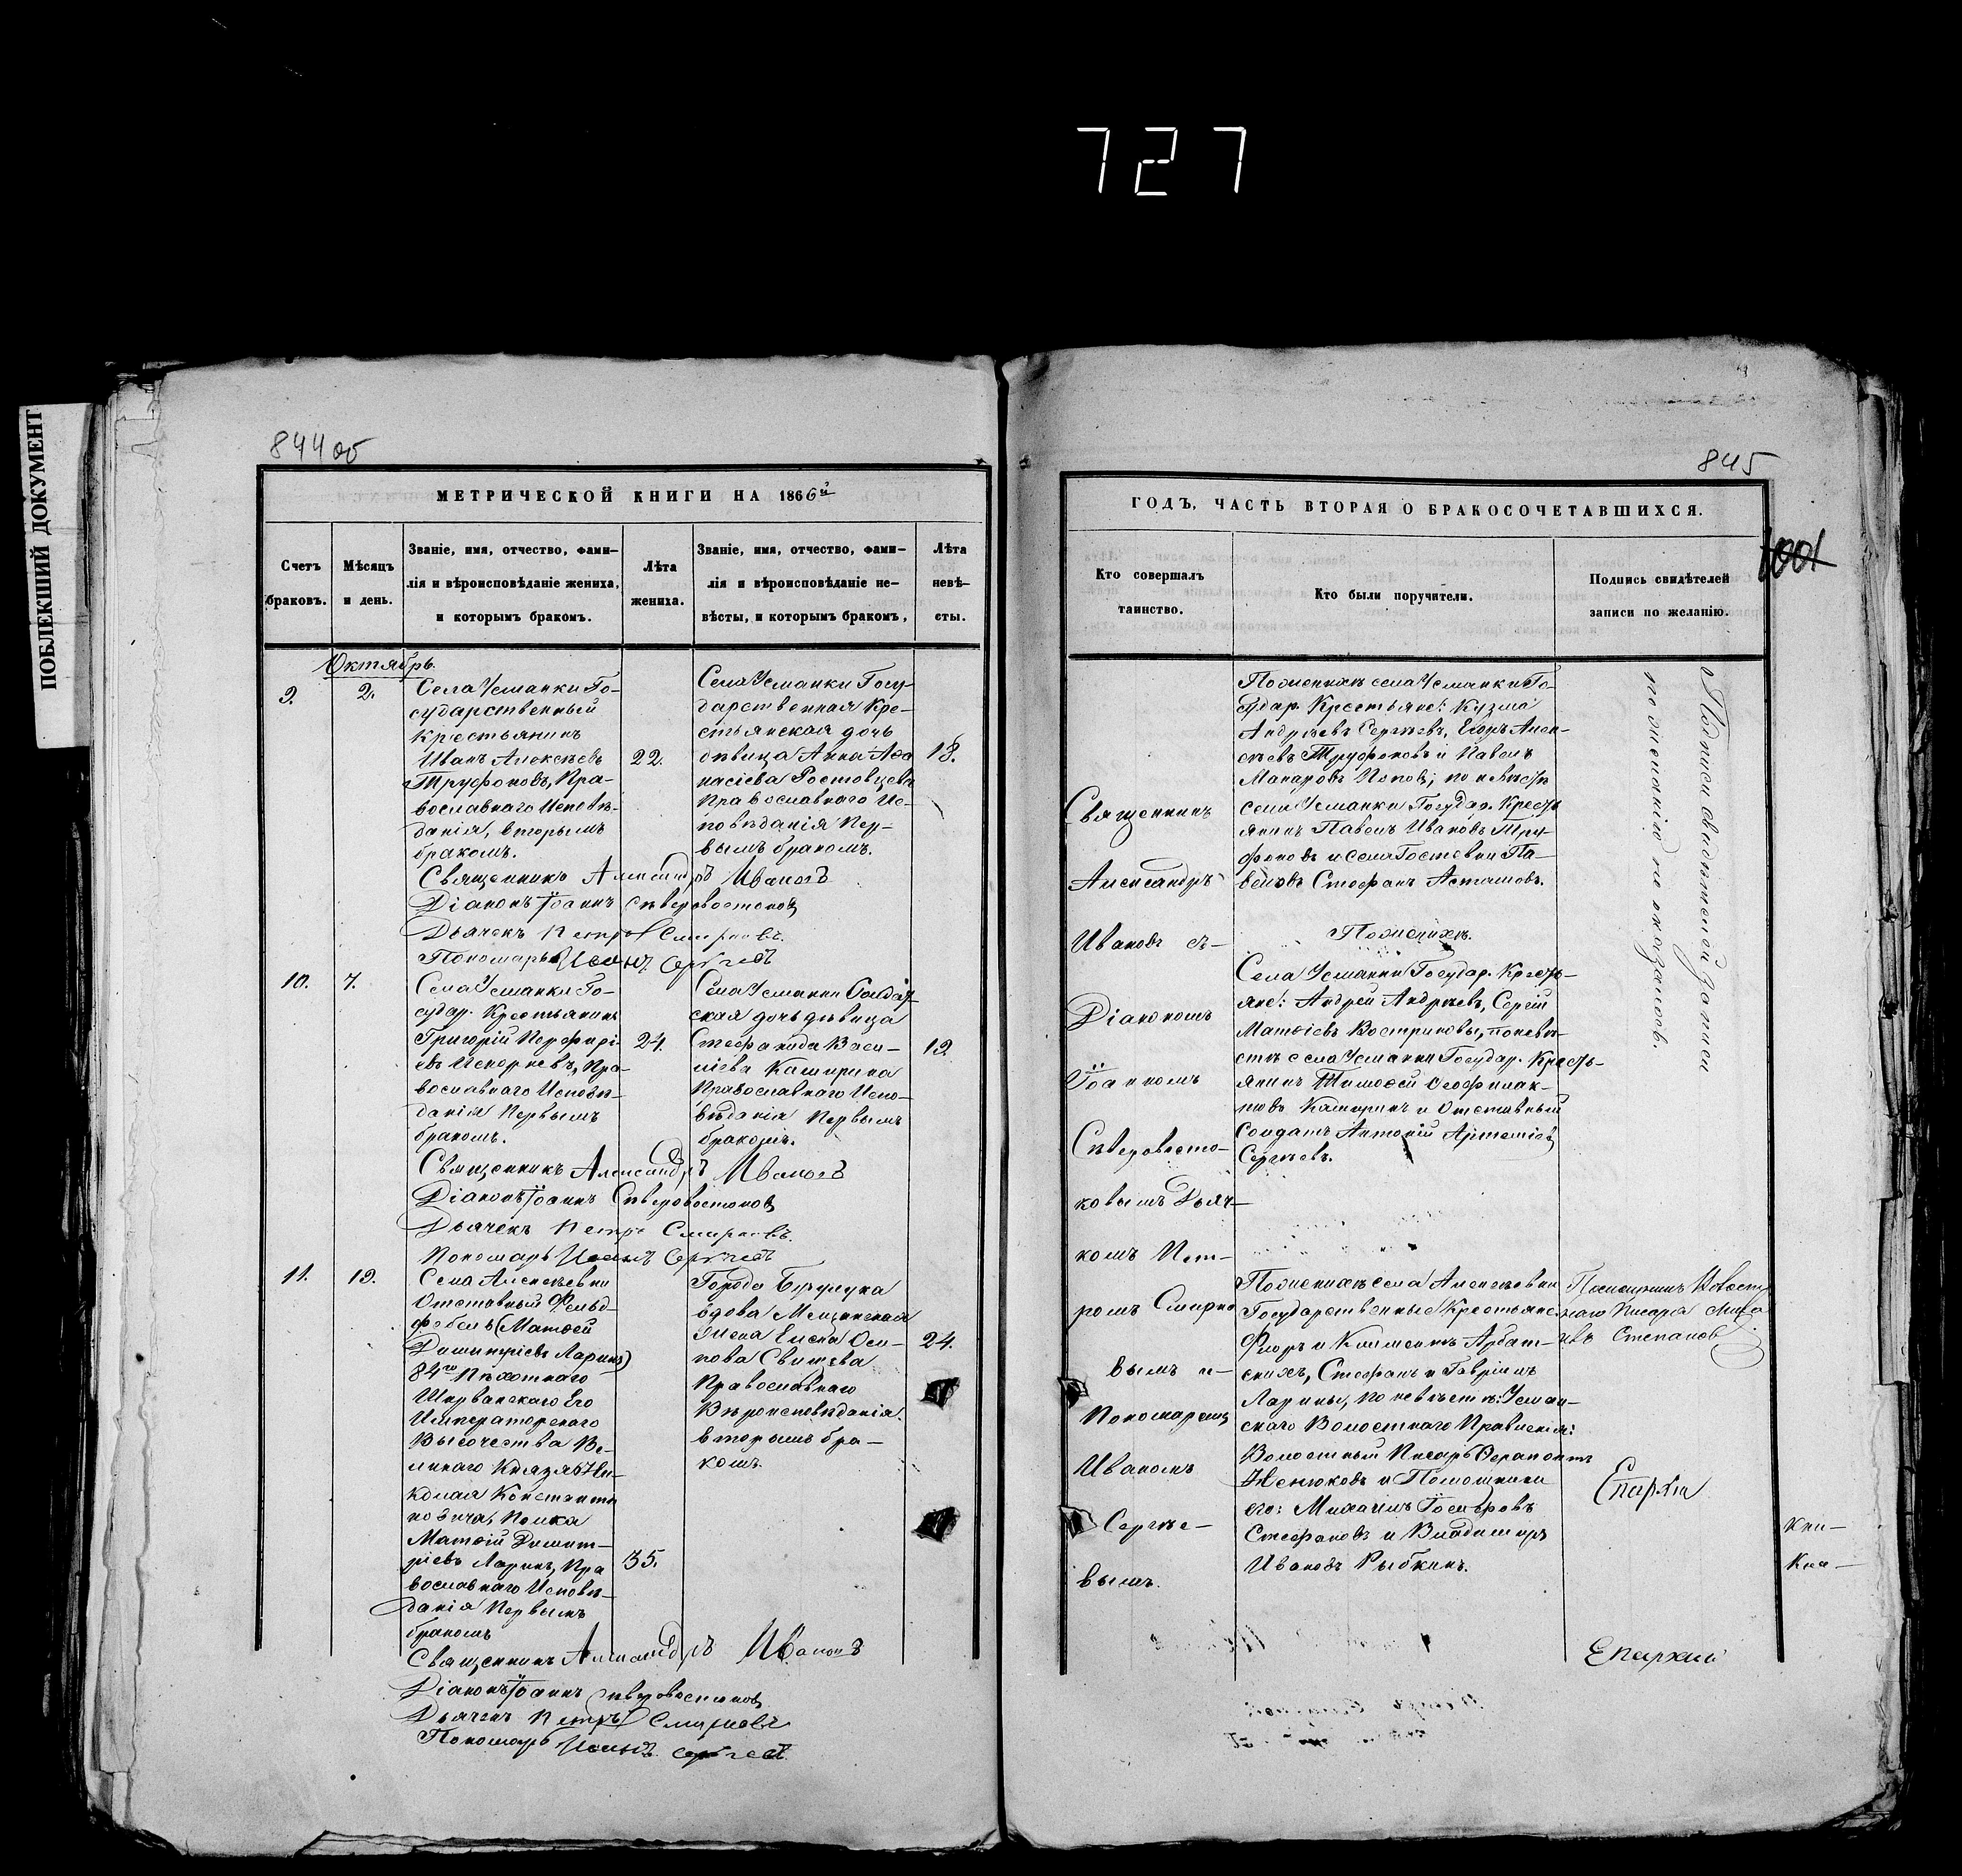 727
ПОБЛЕКШИЙ ДОКУМЕНТ
844 об
МЕТРИЧЕСКОЙ КНИГИ НА 1866й
Счетъ браковъ.
Мѣсяцъ и день.
Званіе, имя, отчество, фами-
лія и вѣроисповѣданіе жениха,
и которымъ бракомъ.
Лѣта жениха.
Званіе, имя, отчество, фами-
лія и вѣроисповѣданіе не-
вѣсты, и которымъ бракомъ,
Лѣта невѣ-
сты.
Октябрь.
9.
2.
Села Усманки Го-
сударственный
крестьянинъ
Иванъ Алексѣевъ
Труфоновъ, Пра-
вославнаго Исповѣ-
данія, вторымъ
бракомъ.
22.
Села Усманки Госу-
дарственная Кре-
стьянская дочь
дѣвица Анна Аѳа
насіева Ростовцева
Православнаго Ис-
повѣданія Пер-
вымъ бракомъ.
18.
Священникъ Александръ Ивановъ
Діаконъ Іоаннъ Сѣверовостоковъ
Дьячекъ Петръ Смирновъ.
Пономарь Иванъ Сергѣевъ
10.
7.
Села Усманки Го-
судар. Крестьянинъ
Григорій Перфирі-
евъ Исперневъ, Пра-
вославнаго Исповѣ-
данія Первымъ
бракомъ.
24.
Села Усманки Солдат-
ская дочь дѣвица
Стефанида Васи-
ліева Каширина
Православнаго Испо-
вѣданія Первымъ
бракомъ.
19.
Священникъ Александръ Ивановъ
Діаконъ Іоаннъ Сѣверовостоковъ
Дьячекъ Петръ Смирновъ.
Пономарь Иванъ Сергѣевъ
11.
19.
Села Алексѣевки
Отставный Фельд-
фебель (Матѳей
Димитріевъ Ларинъ)
84го Пѣхотнаго
Ширванскаго Его
Императорскаго
Высочества Ве-
ликаго Князя Ни-
колая Константи
новича, Полка
Матѳій Димит-
ріевъ Ларинъ, Пра
вославнаго Исповѣ-
данія Первымъ
бракомъ
35.
Города Бузулука
вдова Мещанская
Жена Елена Оси-
пова Свищева
Православнаго
Вѣроисповѣданія.
вторымъ бра-
комъ.
24.
Священникъ Александръ Ивановъ
Діаконъ Іоаннъ Сѣверовостоковъ
Дьячекъ Петръ Смирновъ
Пономарь Иванъ Сергѣевъ
845
1001
ГОДЪ, ЧАСТЬ ВТОРАЯ О БРАКОСОЧЕТАВШИХСЯ.
Кто совершалъ
таинство.
Кто были поручители.
Подпись свидѣтелей
записи по желанію.
Священникъ
Александръ
Ивановъ съ-
Діакономъ
Іоанномъ
Сѣверовосто-
ковымъ Дьяч-
комъ Пет-
ромъ Смирно
вымъ и-
Пономаремъ
Иваномъ
Сергѣе-
вымъ.
По женихѣ села Усманки Го-
судар. Крестьяне: Кузма
Андреевъ Сергѣевъ, Егоръ Алек-
сѣевъ Труфоновъ и Павелъ
Макаровъ Поповъ; по невѣстѣ
села Усманки Государ. Кресть
янинъ Павелъ Ивановъ Тру-
фоновъ и села Гостевки Па-
веловъ Стефанъ Асташовъ.
По женихѣ.
Села Усманки Государ. Кресть-
яне: Андрей Андреевъ, Сергій
Матѳіевъ Востриковы, по невѣ-
стѣ села Усманки Государ. Кресть-
янинъ Тимоѳей Ѳеофилак-
товъ Каширинъ и Отставный
Солдатъ Антоній Артеміев
Сергѣевъ.
По женихѣ села Алексѣевки
Государственные Крестьяне.
Флоръ и Климентъ Арбат-
скихъ, Стефанъ и Гавріилъ
Ларины, по невѣстѣ: Усман-
скаго Волостнаго Правленія:
Волостный Писарь Ѳерапонтъ
Женюковъ и Помощники
его: Михаилъ Іосифовъ
Стефановъ и Владимиръ
Ивановъ Рыбкинъ.
Подписи свидѣтелей записи
по желанію не оказалось.
Помощникъ Волост
наго Писаря Миха
илъ Степановъ
Епархіи
Епархіи